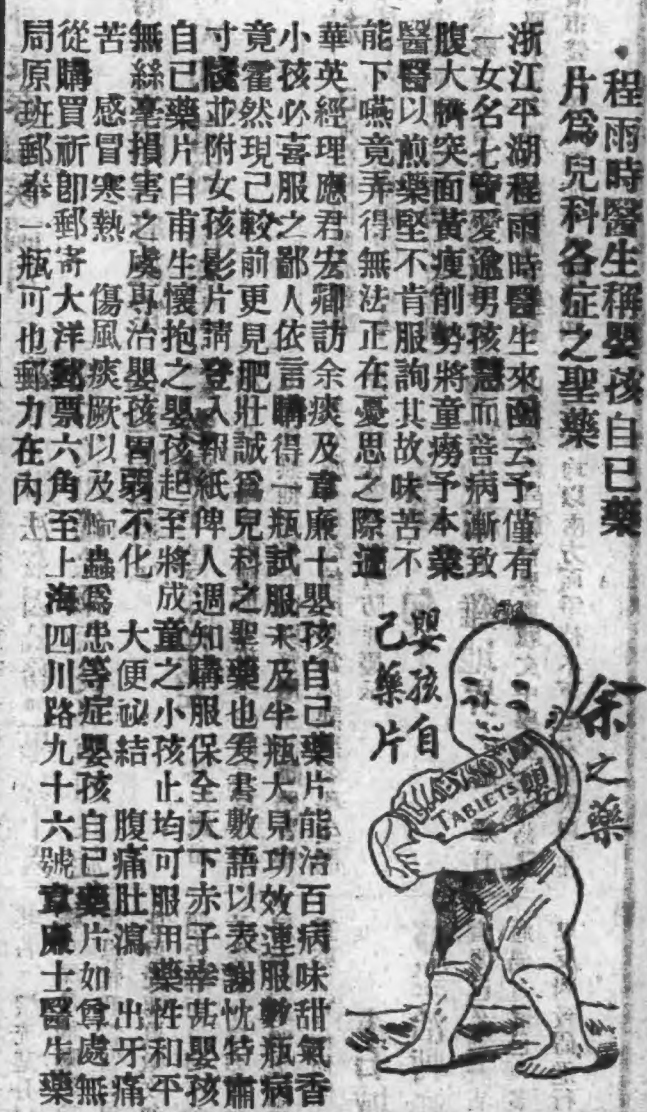 程雨時醫生稱嬰孩自己藥
片爲兒科各症之聖藥
浙江平湖程雨時醫生來函云予僅有
一女名七寶愛逾男孩慧而善病漸致
腹大臍突面黃瘦削勢將童癆予本業
醫醫以煎藥堅不肯服詢其故味苦不
能下嚥竟弄得無法正在憂思之際適
華英經理應君宏卿訪余痰及韋廉十嬰孩自己藥片能治百病味甜氣香
小孩必喜服之鄙人依言購得一瓶試服未及半瓶大見功效連服數瓶病
竟霍然現已較前更見肥壯誠爲兒科之聖藥也爰書數語以表謝忱特肅
寸牋並附女孩影片請登入報紙俾人週知購服保全天下赤子幸甚嬰孩
自已藥片自甫生懷抱之嬰孩起至將成童之小孩止均可服用藥性和平
無絲毫損害之虞專治嬰孩胃弱不化 大便祕結 腹痛肚瀉 出牙痛
苦 感冒寒熱 傷風痰厥以及 蟲爲患等症嬰孩自己藥片如尊處無
從購買祈卽郵寄大洋郵票六角至上海四川路九十六號韋廉士醫生藥
局原班郵奉一瓶可也郵力在內
余之藥
嬰孩自
己藥片
BABY'S OWN
TABLETS